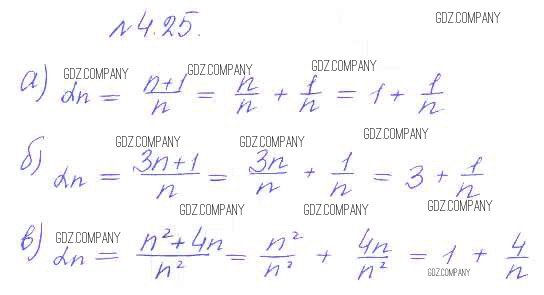 GDZ.COMPANY
№4.25.
GDZ.COMPANY GDZ.COMPANY GDZ.COMPANY
а) αn = n+1/n = n/n + 1/n = 1 + 1/n
GDZ.COMPANY GDZ.COMPANY GDZ.COMPANY
б) αn = 3n+1/n = 3n/n + 1/n = 3 + 1/n
GDZ.COMPANY GDZ.COMPANY GDZ.COMPANY
GDZ.COMPANY
в) αn = n²+4n/n² = n²/n² + 4n/n² = 1 + 4/n
GDZ.COMPANY